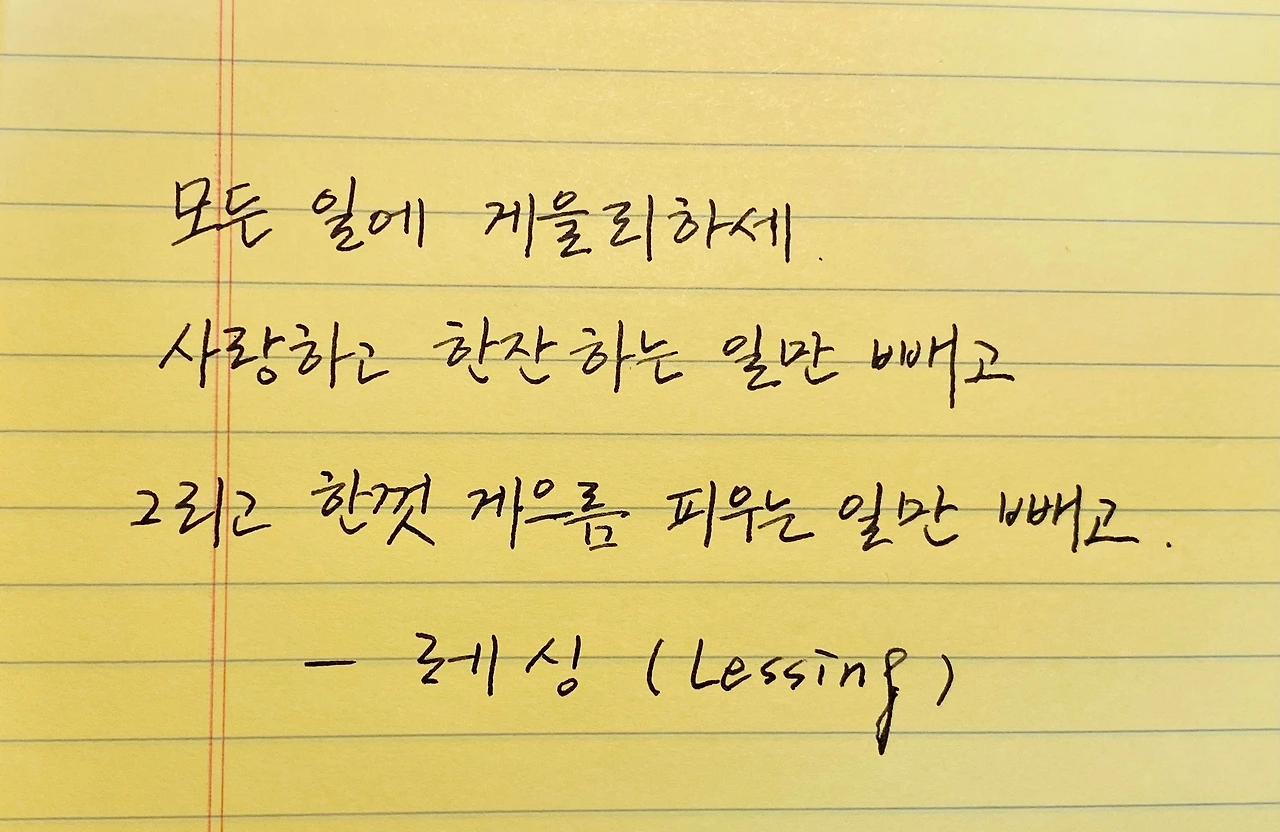 모든 일에 게을리하세.
사랑하고 한잔하는 일만 빼고
그리고 한껏 게으름 피우는 일만 빼고.
- 레싱 (Lessing)